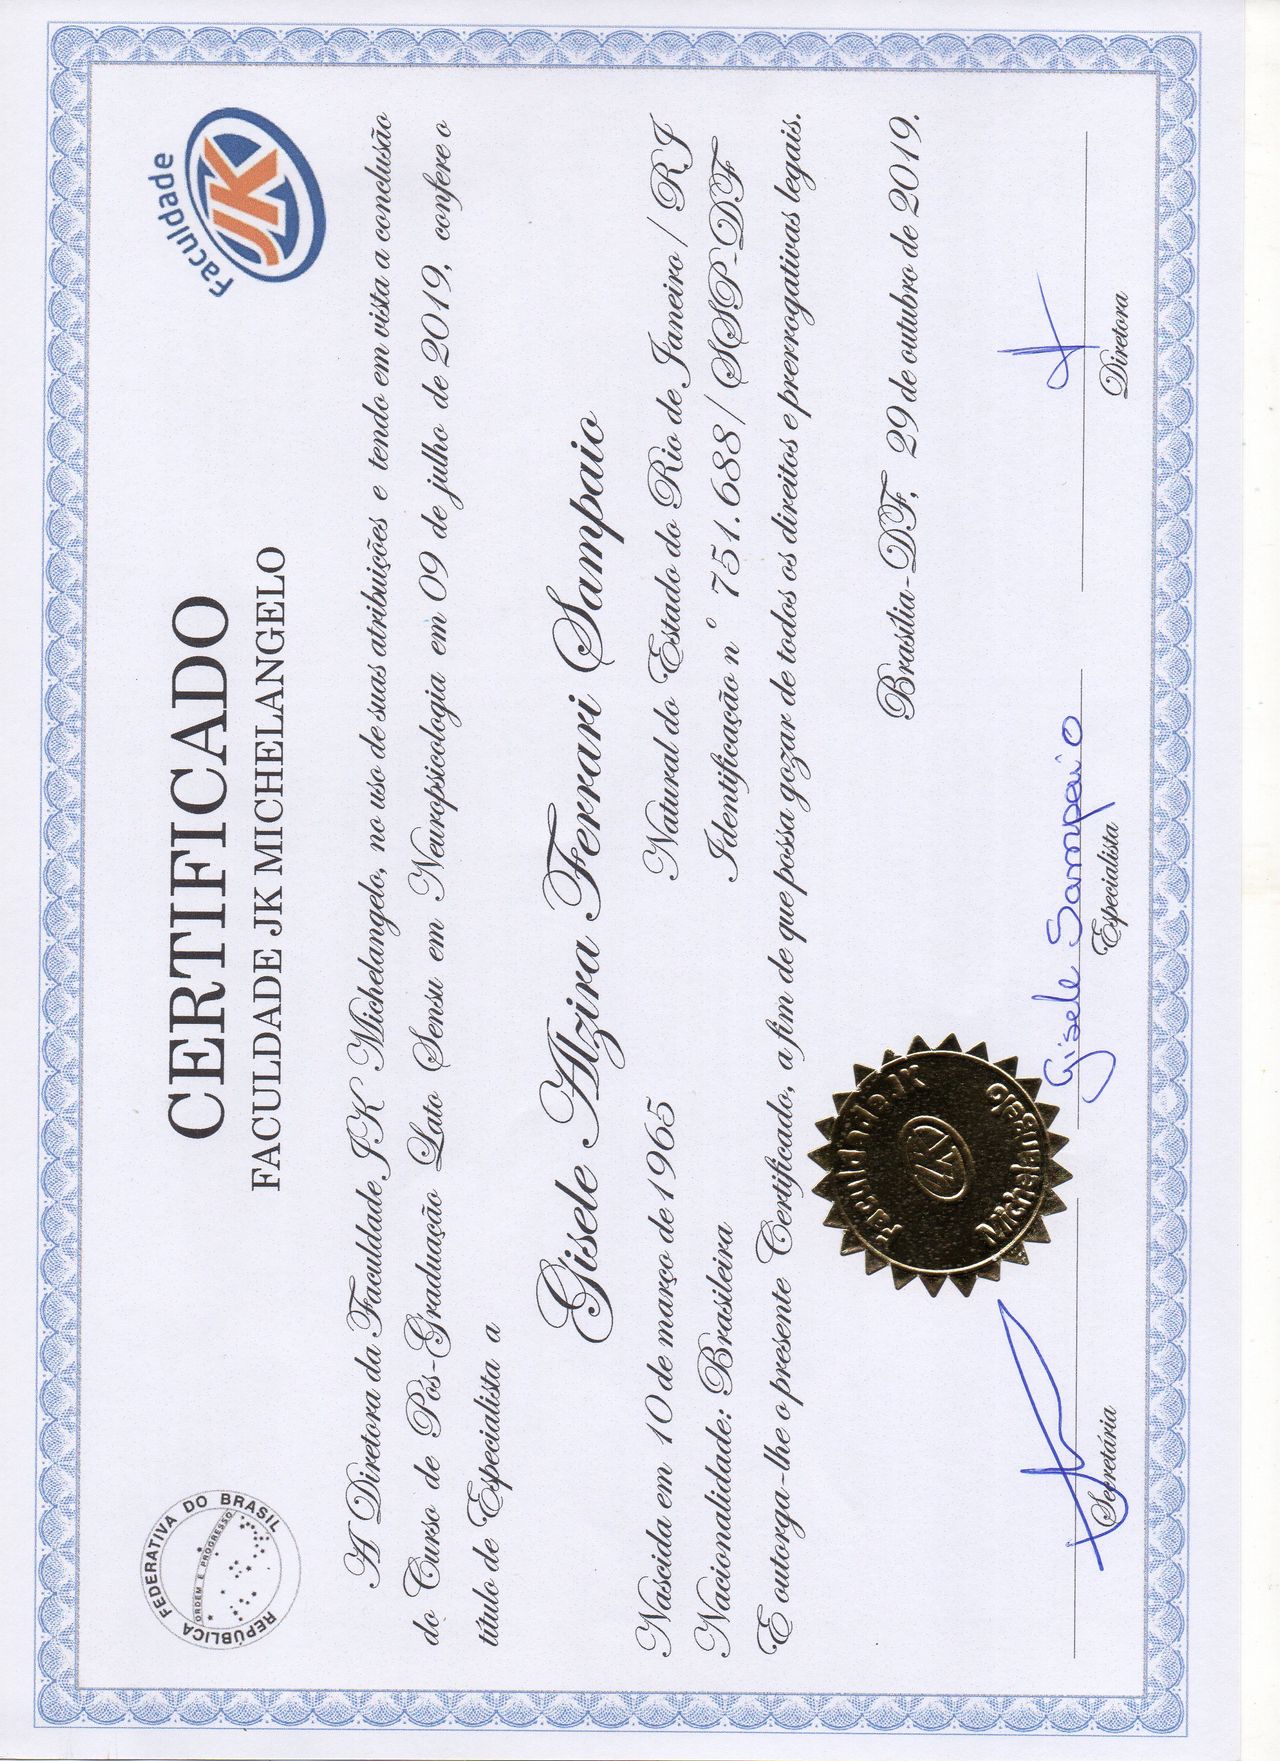 REPÚBLICA FEDERATIVA DO BRASIL
ORDEM E PROGRESSO
Faculdade
JK
CERTIFICADO
FACULDADE JK MICHELANGELO
A Diretora da Faculdade JK Michelangelo, no uso de suas atribuições e tendo em vista a conclusão
do Curso de Pós-Graduação Lato Sensu em Neuropsicologia em 09 de julho de 2019, confere o
título de Especialista a
Gisele Alzira Ferrari Sampaio
Nascida em 10 de março de 1965 Natural do Estado do Rio de Janeiro / RJ
Nacionalidade: Brasileira Identificação nº 751.688 / SSP-DF
E outorga-lhe o presente Certificado, a fim de que possa gozar de todos os direitos e prerrogativas legais.
Brasília-DF, 29 de outubro de 2019.
Faculdade JK
JK
Michelangelo
Gisele Sampaio
Secretária
Especialista
Diretora